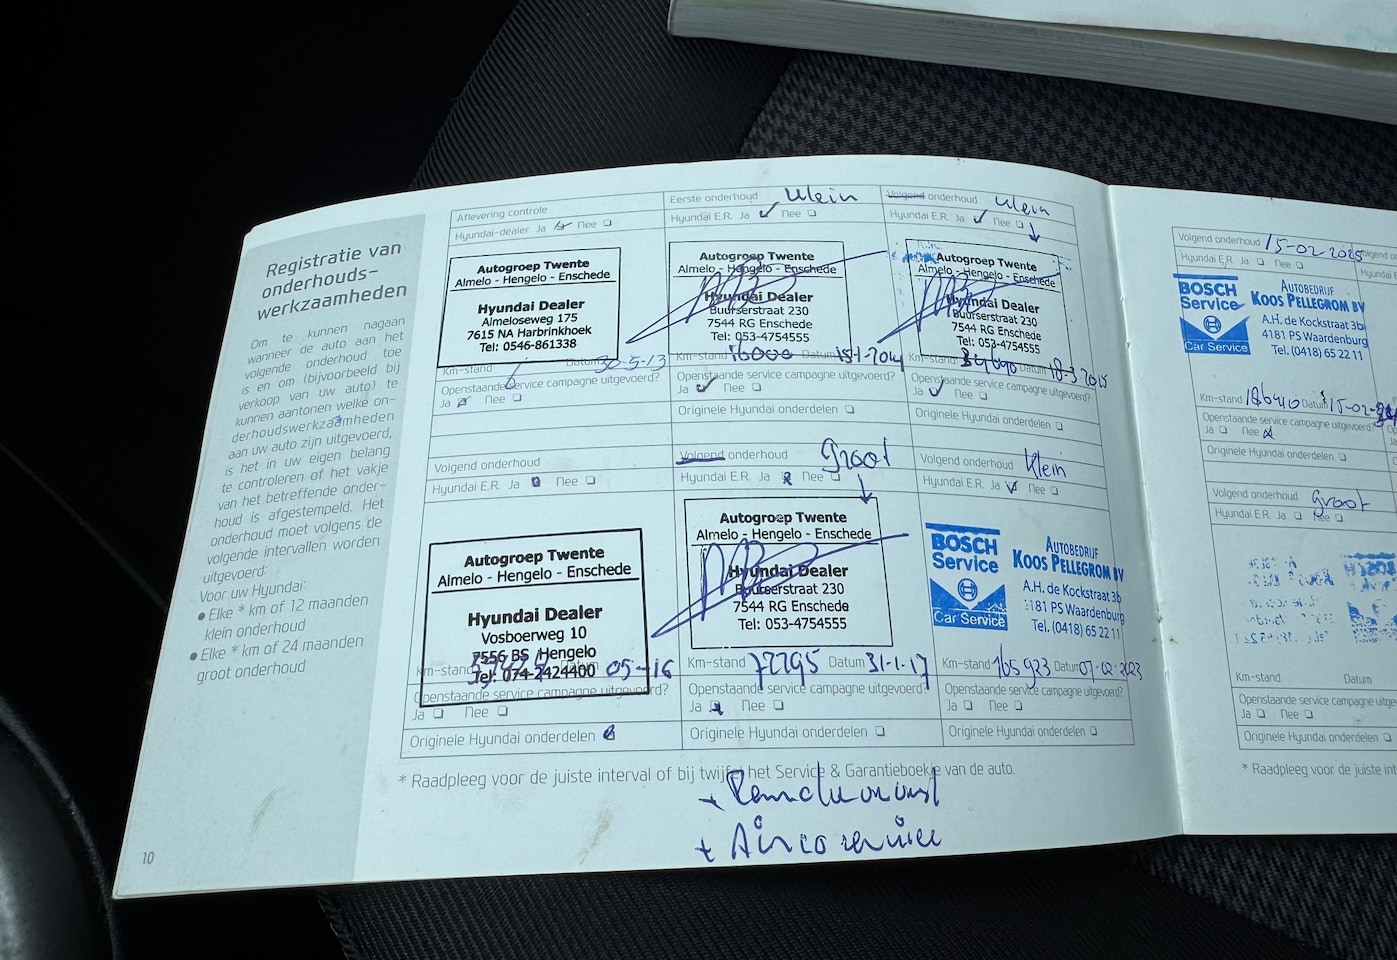 Registratie van
onderhouds-
werkzaamheden
Om te kunnen nagaan
wanneer de auto aan het
volgende onderhoud toe
is en om (bijvoorbeeld bij
verkoop van uw auto) te
kunnen aantonen welke on-
derhoudswerkzaamheden
aan uw auto zijn uitgevoerd,
is het in uw eigen belang
te controleren of het vakje
van het betreffende onder-
houd is afgestempeld. Het
onderhoud moet volgens de
volgende intervallen worden
uitgevoerd:
Voor uw Hyundai:
● Elke * km of 12 maanden
klein onderhoud
● Elke * km of 24 maanden
groot onderhoud
10
Aflevering controle
Hyundai-dealer Ja Nee
Autogroep Twente
Almelo - Hengelo - Enschede
Hyundai Dealer
Almeloseweg 175
7615 NA Harbrinkhoek
Tel: 0546-861338
Km-stand 6 Datum 30-5-13
Openstaande service campagne uitgevoerd?
Ja Nee
Eerste onderhoud klein
Hyundai E.R. Ja Nee
Autogroep Twente
Almelo - Hengelo - Enschede
Hyundai Dealer
Buurserstraat 230
7544 RG Enschede
Tel: 053-4754555
Km-stand 16000 Datum
Openstaande service campagne uitgevoerd?
Ja Nee
Originele Hyundai onderdelen
Volgend onderhoud klein
Hyundai E.R. Ja Nee
Autogroep Twente
Almelo - Hengelo - Enschede
Hyundai Dealer
Buurserstraat 230
7544 RG Enschede
Tel: 053-4754555
Km-stand Datum 18-3-2015
Openstaande service campagne uitgevoerd?
Ja Nee
Originele Hyundai onderdelen
Volgend onderhoud
Hyundai E.R. Ja Nee
Autogroep Twente
Almelo - Hengelo - Enschede
Hyundai Dealer
Vosboerweg 10
7556 BS Hengelo
Tel: 074-2424400
Km-stand Datum 05-16
Openstaande service campagne uitgevoerd?
Ja Nee
Originele Hyundai onderdelen
Volgend onderhoud Groot
Hyundai E.R. Ja Nee
Autogroep Twente
Almelo - Hengelo - Enschede
Hyundai Dealer
Buurserstraat 230
7544 RG Enschede
Tel: 053-4754555
Km-stand 77795 Datum 31-1-17
Openstaande service campagne uitgevoerd?
Ja Nee
Originele Hyundai onderdelen
Volgend onderhoud Klein
Hyundai E.R. Ja Nee
BOSCH
Service
Car Service
AUTOBEDRIJF
KOOS PELLEGROM BV
A.H. de Kockstraat 3b
4181 PS Waardenburg
Tel. (0418) 65 22 11
Km-stand 165923 Datum 07-02-2023
Openstaande service campagne uitgevoerd?
Ja Nee
Originele Hyundai onderdelen
* Raadpleeg voor de juiste interval of bij twijfel het Service & Garantieboekje van de auto.
+ Remolievloeistof
+ Airco service
Volgend onderhoud 15-02-2025
Hyundai E.R. Ja Nee
BOSCH
Service
Car Service
AUTOBEDRIJF
KOOS PELLEGROM BV
A.H. de Kockstraat 3b
4181 PS Waardenburg
Tel. (0418) 65 22 11
Km-stand 186410 Datum 15-02-
Openstaande service campagne uitgevoerd?
Ja Nee
Originele Hyundai onderdelen
Volgend onderhoud Groot
Hyundai E.R. Ja Nee
Km-stand Datum
Openstaande service campagne uitge
Ja Nee
Originele Hyundai onderdelen
* Raadpleeg voor de juiste in